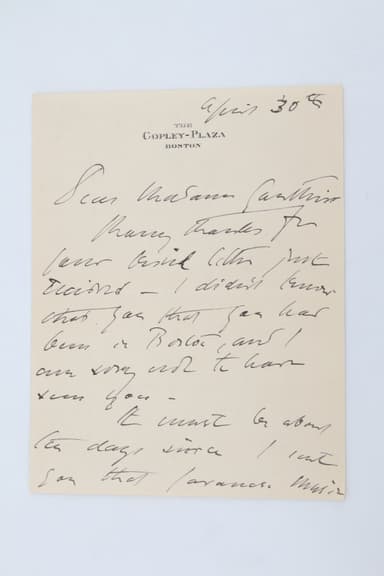 April 30th
THE
COPLEY-PLAZA
BOSTON
Dear Madame Gauthier
Many thanks for
your kind letter just
received - I didn't know
that you that you had
been in Boston, and I
am sorry not to have
seen you -
It must be about
ten days since I sent
you that Javanese music